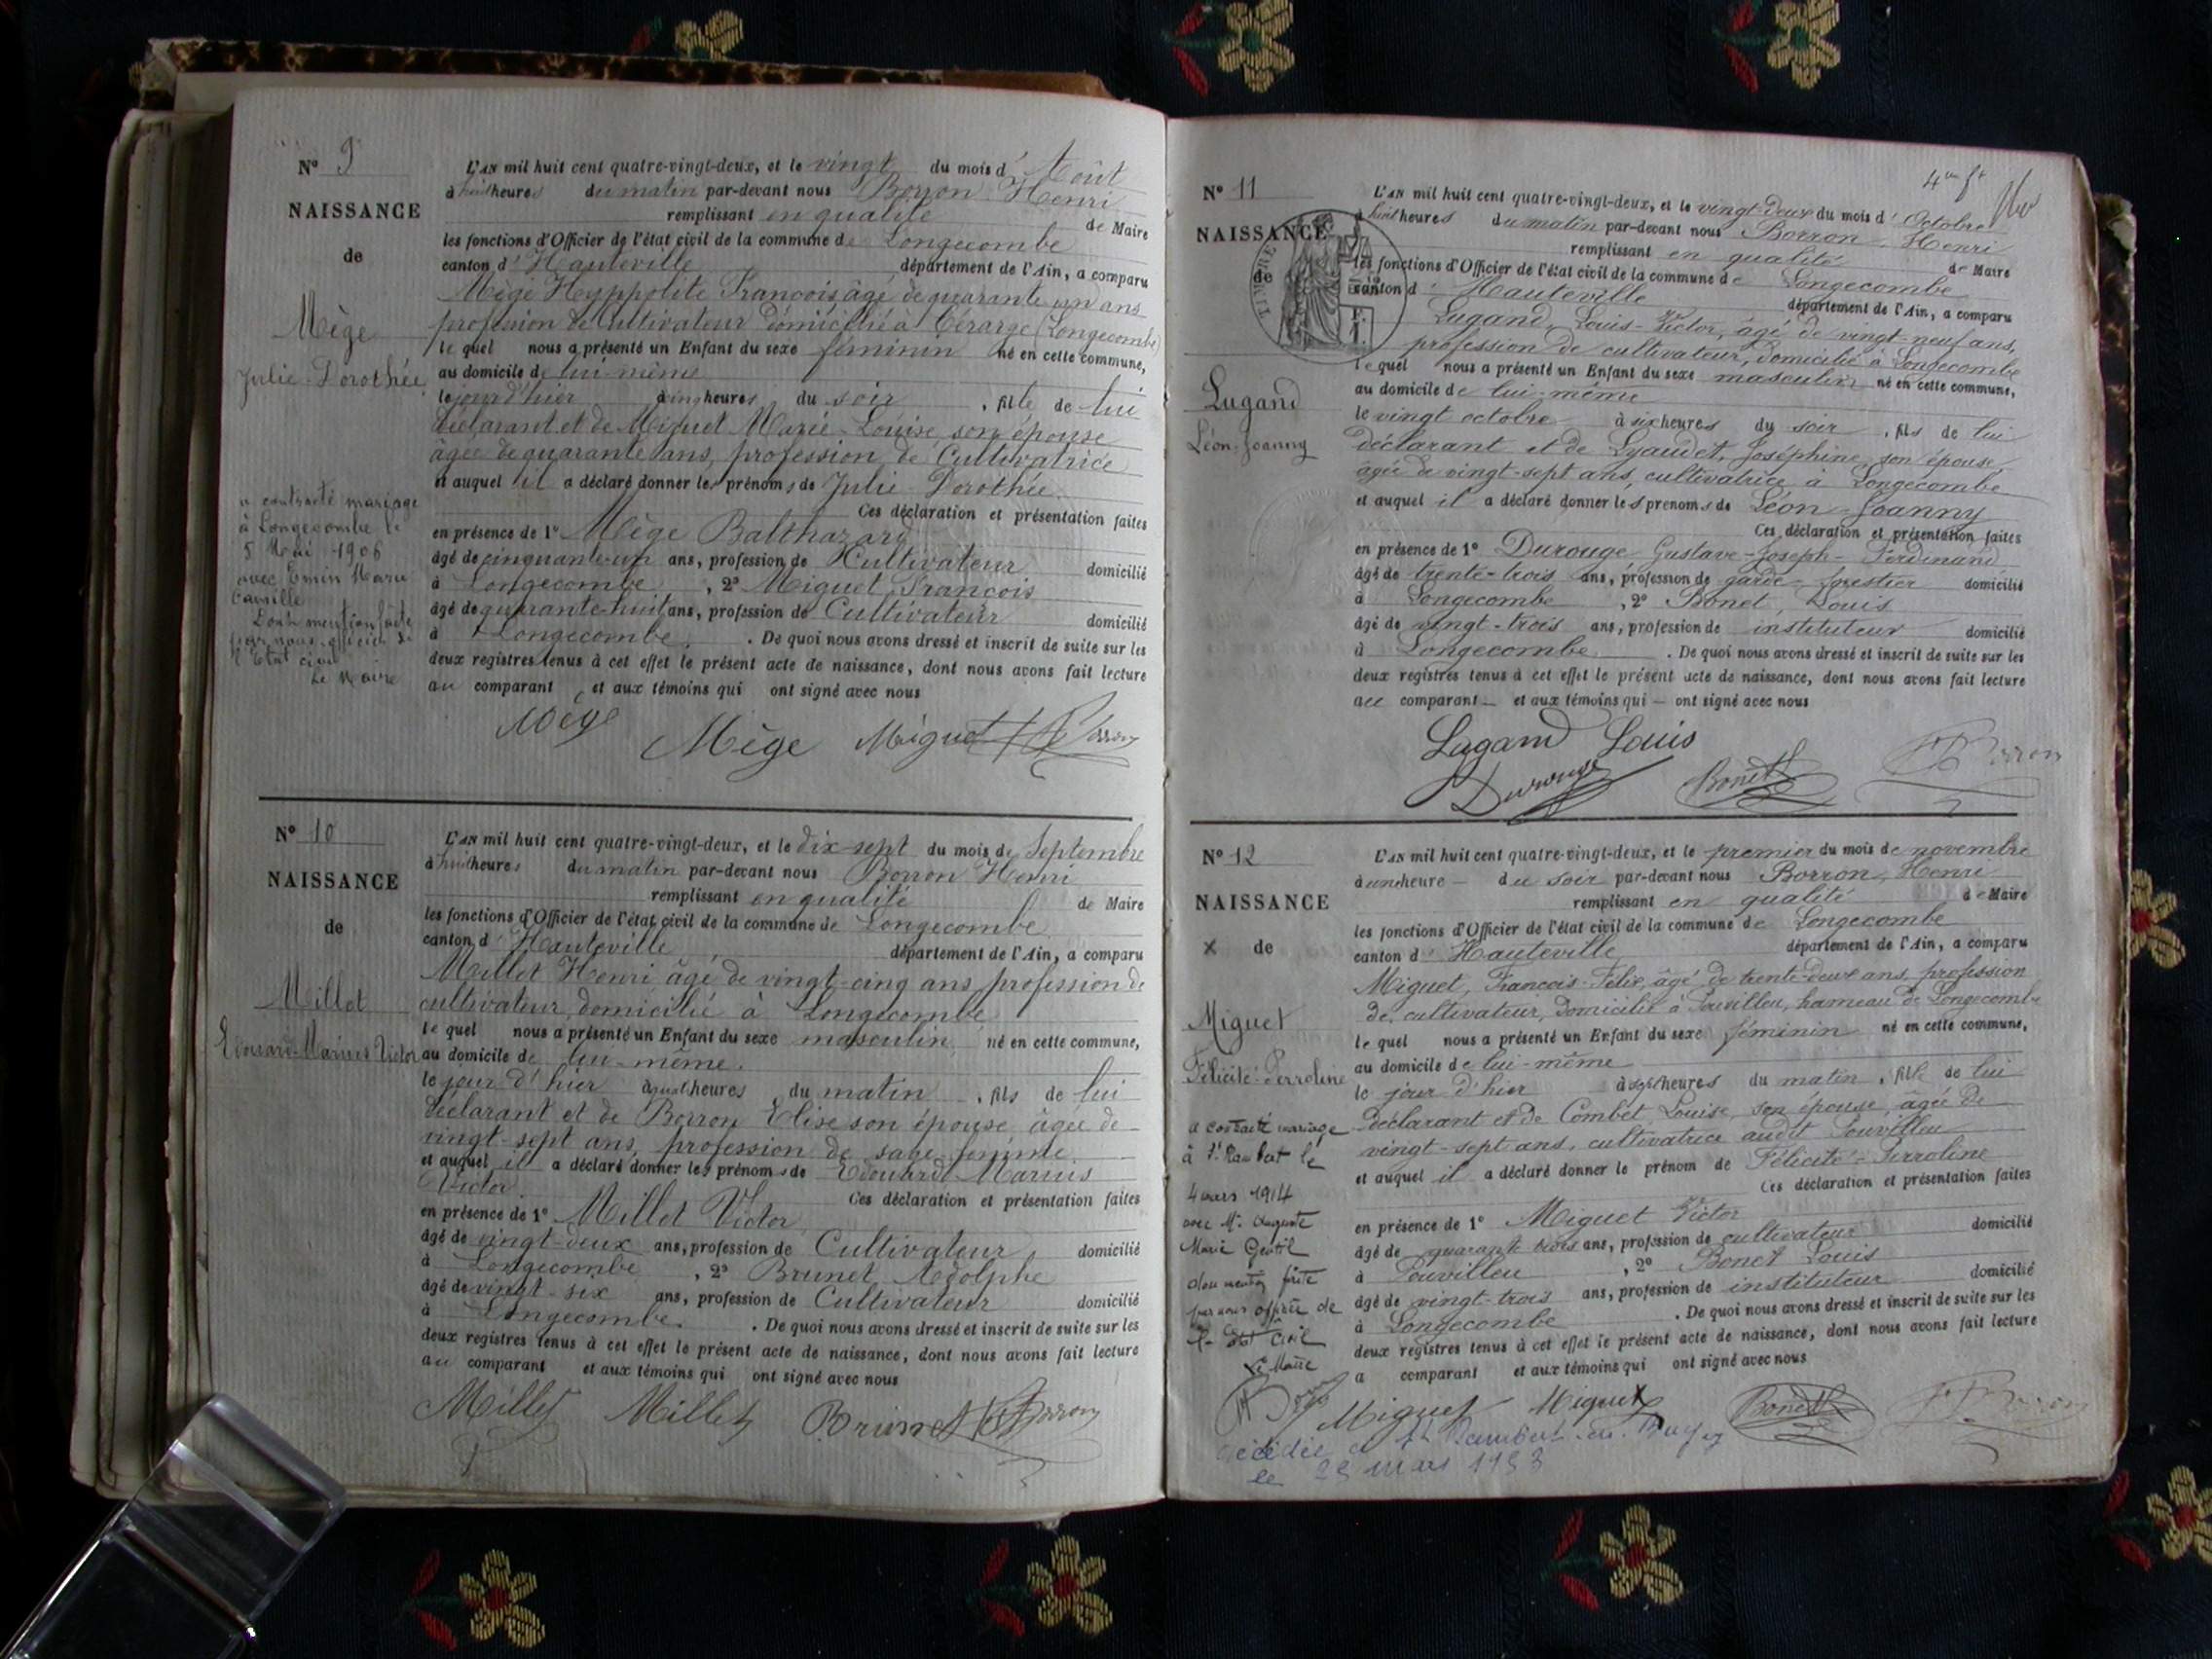 N° 9
NAISSANCE
de
Mège
Julie-Dorothée
a contracté mariage
à Longecombe le
5 Mai 1906
avec Emin Marie
Camille
Dont mention faite
par nous officier de
l'Etat civil
Le Maire
L'AN mil huit cent quatre-vingt-deux, et le vingt du mois d' Août
à huit heures du matin par-devant nous Borron Henri
remplissant en qualité de Maire
les fonctions d'Officier de l'état civil de la commune de Longecombe
canton d' Hauteville département de l'Ain, a comparu
Mège Hyppolite François âgé de quarante un ans
profession de cultivateur domicilié à Cérarge (Longecombe)
le quel nous a présenté un Enfant du sexe féminin né en cette commune,
au domicile de lui-même
le jour d'hier à cinq heures du soir, fille de lui
déclarant et de Miguet Marie-Louise, son épouse
âgée de quarante ans, profession de Cultivatrice
et auquel il a déclaré donner les prénoms de Julie-Dorothée.
Ces déclaration et présentation faites
en présence de 1° Mège Balthazard
âgé de cinquante-un ans, profession de Cultivateur domicilié
à Longecombe, 2° Miguet François
âgé de quarante-huit ans, profession de Cultivateur domicilié
à Longecombe. De quoi nous avons dressé et inscrit de suite sur les
deux registres tenus à cet effet le présent acte de naissance, dont nous avons fait lecture
au comparant, et aux témoins qui ont signé avec nous
Mège Mège Miguet H Borron
N° 10
NAISSANCE
de
Millet
Edouard-Marius Victor
L'AN mil huit cent quatre-vingt-deux, et le dix-sept du mois de Septembre
à huit heures du matin par-devant nous Borron Henri
remplissant en qualité de Maire
les fonctions d'Officier de l'état civil de la commune de Longecombe
canton d' Hauteville département de l'Ain, a comparu
Millet Henri âgé de vingt-cinq ans profession de
cultivateur, domicilié à Longecombe
le quel nous a présenté un Enfant du sexe masculin né en cette commune,
au domicile de lui-même.
le jour d'hier à heures du matin, fils de lui
déclarant et de Borron Elise son épouse âgée de
vingt-sept ans, profession de sage femme
et auquel il a déclaré donner les prénoms de Edouard Marius
Victor. Ces déclaration et présentation faites
en présence de 1° Millet Victor
âgé de vingt-deux ans, profession de Cultivateur, domicilié
à Longecombe, 2° Brunet Adolphe
âgé de vingt-six ans, profession de Cultivateur domicilié
à Longecombe. De quoi nous avons dressé et inscrit de suite sur les
deux registres tenus à cet effet le présent acte de naissance, dont nous avons fait lecture
au comparant et aux témoins qui ont signé avec nous
Millet Millet Brunet H Borron
4me ft
N° 11
NAISSANCE
de
TIMBRE
Lugand
Léon-Joanny
L'AN mil huit cent quatre-vingt-deux, et le vingt-deux du mois d' Octobre
à huit heures du matin par-devant nous Borron, Henri
remplissant en qualité de Maire
les fonctions d'Officier de l'état civil de la commune de Longecombe
canton d' Hauteville département de l'Ain, a comparu
Lugand, Louis-Victor, âgé de vingt-neuf ans,
profession de cultivateur, domicilié à Longecombe
le quel nous a présenté un Enfant du sexe masculin né en cette commune,
au domicile de lui-même
le vingt octobre à six heures du soir, fils de lui
déclarant et de Lyaudet, Joséphine son épouse,
âgée de vingt-sept ans, cultivatrice à Longecombe
et auquel il a déclaré donner les prenoms de Léon-Joanny
Ces déclaration et présentation faites
en présence de 1° Durouge Gustave-Joseph-Ferdinand
âgé de trente-trois ans, profession de garde-forestier domicilié
à Longecombe, 2° Bonet, Louis
âgé de vingt-trois ans, profession de instituteur domicilié
à Longecombe. De quoi nous avons dressé et inscrit de suite sur les
deux registres tenus à cet effet le présent acte de naissance, dont nous avons fait lecture
au comparant et aux témoins qui ont signé avec nous
Lugand Louis
Durouge Bonet H Borron
N° 12
NAISSANCE
x de
Miguet
Félicité-Perroline
a contracté mariage
à St Rambert le
4 mars 1914
avec Mr Auguste
Marie Gentil
dont mention faite
par nous officier de
l'Etat Civil
Le Maire
L'AN mil huit cent quatre-vingt-deux, et le premier du mois de novembre
à une heure du soir par-devant nous Borron, Henri
remplissant en qualité de Maire
les fonctions d'Officier de l'état civil de la commune de Longecombe
canton d' Hauteville département de l'Ain, a comparu
Miguet, François-Félix, âgé de trente-deux ans, profession
de cultivateur, domicilié à Louvilleu, hameau de Longecombe
le quel nous a présenté un Enfant du sexe féminin né en cette commune,
au domicile de lui-même
le jour d'hier à sept heures du matin, fille de lui
déclarant et de Combet Louise, son épouse, âgée de
vingt-sept ans, cultivatrice audit Louvilleu
et auquel il a déclaré donner le prénom de Félicité-Perroline
Ces déclaration et présentation faites
en présence de 1° Miguet Victor
âgé de quarante trois ans, profession de cultivateur domicilié
à Louvilleu, 2° Bonet Louis
âgé de vingt-trois ans, profession de instituteur domicilié
à Longecombe. De quoi nous avons dressé et inscrit de suite sur les
deux registres tenus à cet effet le présent acte de naissance, dont nous avons fait lecture
a comparant et aux témoins qui ont signé avec nous
Miguet Miguet Bonet H Borron
décédée à St Rambert-en-Bugey
le 23 mars 1953